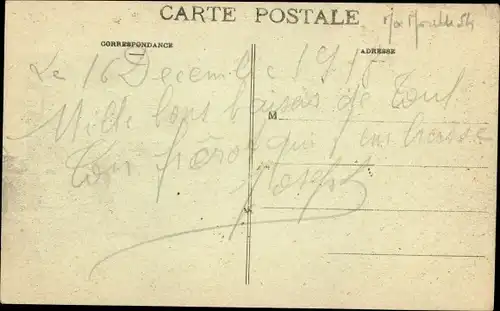 CARTE POSTALE
CORRESPONDANCE
ADRESSE
Le 16 Decembre 1915
Mille bons baisers de Toul
M
Ton qui embrasse
Joseph